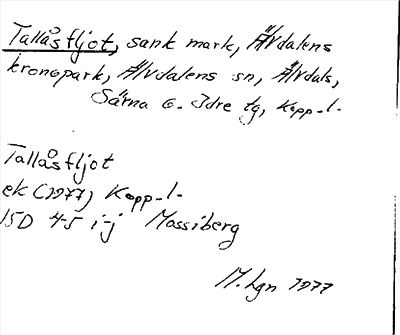 Tallåsfljot, sank mark, Älvdalens
kronopark, Älvdalens sn, Älvdals,
Särna o. Idre tg, Kopp-l.
Tallåsfljot
ek (1977) Kopp-l.
15D 4-5 i-j Mossiberg
M. Lgn 1977